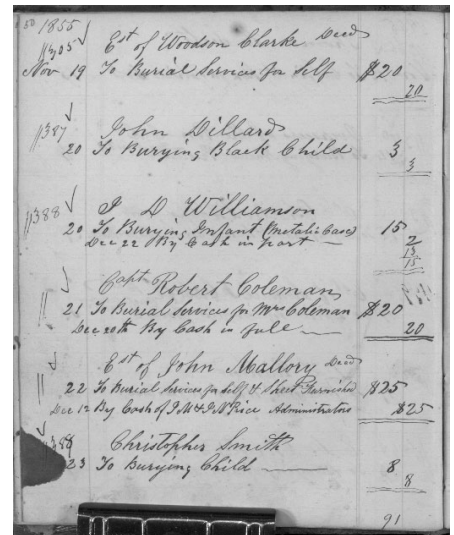 50 1855
1305 Est of Woodson Clarke Decd
Nov 19 To Burial Services for Self $20
20
1387 John Dillard
20 To Burying Black Child 3
3
1388 J D Williamson
20 To Burying Infant (Metalic Case) 15
Dec 22 By Cash in part — 2
13
15
Capt Robert Coleman
21 To Burial Services for Mrs Coleman $20
Dec 20th By Cash in full — 20
Est of John Mallory Decd
22 To Burial Services for Self & Sheet Furnished $25
Dec 12 By Cash of J M & J W Rice Administrators $25
Christopher Smith
23 To Burying Child — 8
8
91